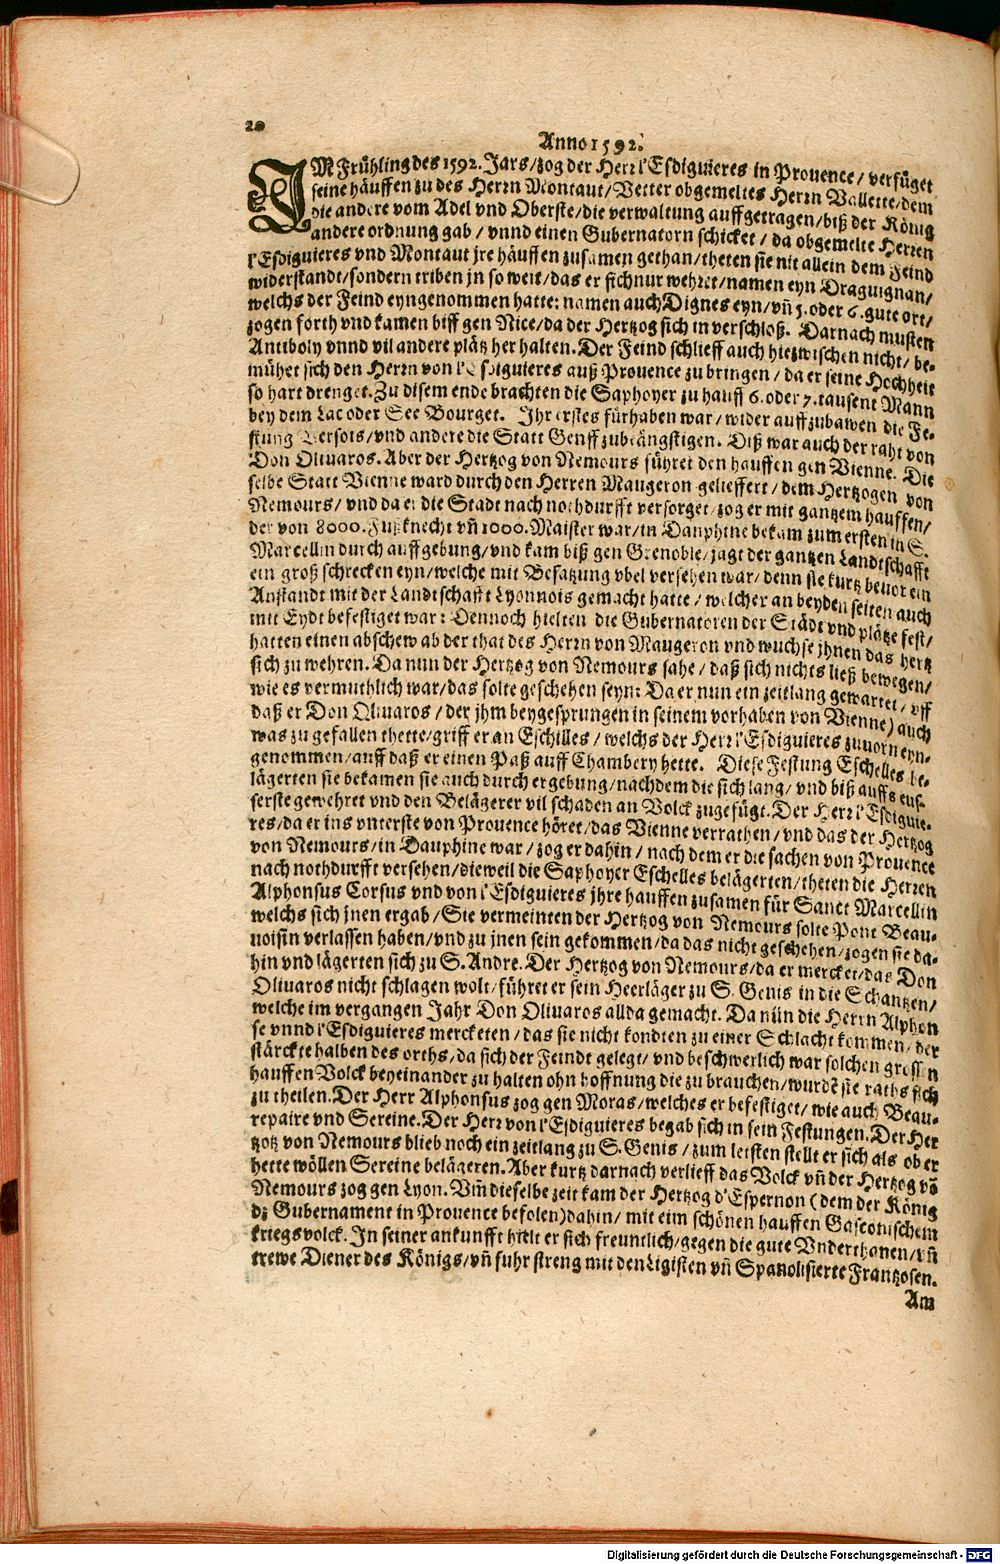 20
Anno 1592.
IM Frühling des 1592. Jars/zog der Herr l'Esdiguieres in Prouence/ verfüget
seine häuffen zu des Herrn Montaut/ Vetter obgemeltes Herrn Vallette/dem
die andere vom Adel vnd Oberste/die verwaltung auffgetragen/biß der König
andere ordnung gab/ vnnd einen Gubernatorn schicket/ da obgemelte Herren
l'Esdiguieres vnd Montaut jre häuffen zusamen gethan/theten sie nit allein dem Feind
widerstandt/sondern triben jn so weit/das er sich nur wehret/namen eyn Draguignan/
welchs der Feind eyngenommen hatte: namen auch Dignes eyn/vn̄ 5. oder 6. gute ort/
zogen forth vnd kamen biß gen Nice/da der Hertzog sich in verschloß. Darnach musten
Antiboly vnnd vil andere plätz her halten. Der Feind schlieff auch hiezwischen nicht/ be-
mühet sich den Herrn von l'Esdiguieres auß Prouence zu bringen/ da er seine Hochheit
so hart drenget. Zu disem ende brachten die Saphoyer zu hauff 6. oder 7. tausent Mann
bey dem Lac oder See Bourget. Ihr erstes fürhaben war/ wider auffzubawen die Fe-
stung Versois/vnd andere die Statt Genff zubeängstigen. Diß war auch der raht von
Don Oliuaros. Aber der Hertzog von Nemours führet den hauffen gen Vienne. Die
selbe Statt Vienne ward durch den Herren Maugeron gelieffert/ dem Hertzogen von
Nemours/ vnd da er die Stadt nach nochdurfft versorget/ zog er mit gantzem hauffen/
der von 8000. Fußknecht vn̄ 1000. Maister war/in Dauphine bekam zum ersten in S.
Marcellin durch auffgebung/vnd kam biß gen Grenoble/ jagt der gantzen Landtschafft
ein groß schrecken eyn/welche mit Besatzung vbel versehen war/ denn sie kurtz beuor ein
Anstandt mit der Landtschafft Lyonnois gemacht hatte/ welcher an beyden seiten auch
mit Eydt befestiget war: Dennoch hielten die Gubernatoren der Städt vnd plätze fest/
hatten einen abschew ab der that des Herrn von Maugeron vnd wuchse jhnen das hertz
sich zu wehren. Da nun der Hertzog von Nemours sahe/ daß sich nichts ließ bewegen/
wie es vermuthlich war/das solte geschehen seyn: Da er nun ein zeitlang gewartet/ vff
daß er Don Oliuaros/ der jhm beygesprungen in seinem vorhaben von Vienne) auch
was zu gefallen thette/griff er an Eschilles/ welchs der Herr l'Esdiguieres zuuorn eyn-
genommen/auff daß er einen Paß auff Chambery hette. Diese Festung Eschelles be-
lägerten sie bekamen sie auch durch ergebung/nachdem die sich lang/ vnd biß auffs eus-
serste gewehret vnd den Belägerer vil schaden an Volck zugefügt. Der Herr l'Esdiguie-
res/da er ins vnterste von Prouence höret/das Vienne verrathen/ vnd das der Hertzog
von Nemours/in Dauphine war/ zog er dahin/ nach dem er die sachen von Prouence
nach nothdurfft versehen/dieweil die Saphoyer Eschelles belägerten/theten die Herren
Alphonsus Corsus vnd von l'Esdiguieres jhre hauffen zusamen für Sanct Marcellin
welchs sich jnen ergab/Sie vermeinten der Hertzog von Nemours solte Pont Beau-
uoisin verlassen haben/vnd zu jnen sein gekommen/da das nicht geschehen/zogen sie da-
hin vnd lägerten sich zu S. Andre. Der Hertzog von Nemours/da er mercket/das Don
Oliuaros nicht schlagen wolt/führet er sein Heerläger zu S. Genis in die Schantzen/
welche im vergangen Jahr Don Oliuaros allda gemacht. Da nun die Herrn Alphon
se vnnd l'Esdiguieres mercketen/ das sie nicht kondten zu einer Schlacht kommen/ der
stärckte halben des orths/da sich der Feindt gelegt/ vnd beschwerlich war solchen grossen
hauffen Volck beyeinander zu halten ohn hoffnung die zu brauchen/wurdē sie raths sich
zu theilen. Der Herr Alphonsus zog gen Moras/welches er befestiget/ wie auch Beau-
repaire vnd Sereine. Der Herr von l'Esdiguieres begab sich in sein Festungen. Der Her
tzog von Nemours blieb noch ein zeitlang zu S. Genis/ zum letsten stellt er sich als ob er
hette wöllen Sereine belägeren. Aber kurtz darnach verlieff das Volck vn̄ der Hertzog vō
Nemours zog gen Lyon. Vm̄ dieselbe zeit kam der Hertzog d'Espernon (dem der König
dz Gubernament in Prouence befolen) dahin/ mit eim schönen hauffen Gasconischem
kriegsvolck. In seiner ankunfft hielt er sich freuntlich/gegen die gute Vnderthanen/vn̄
trewe Diener des Königs/vn̄ fuhr streng mit den Ligisten vn̄ Spanolisierte Frantzosen.
Am
Digitalisierung gefördert durch die Deutsche Forschungsgemeinschaft - DFG